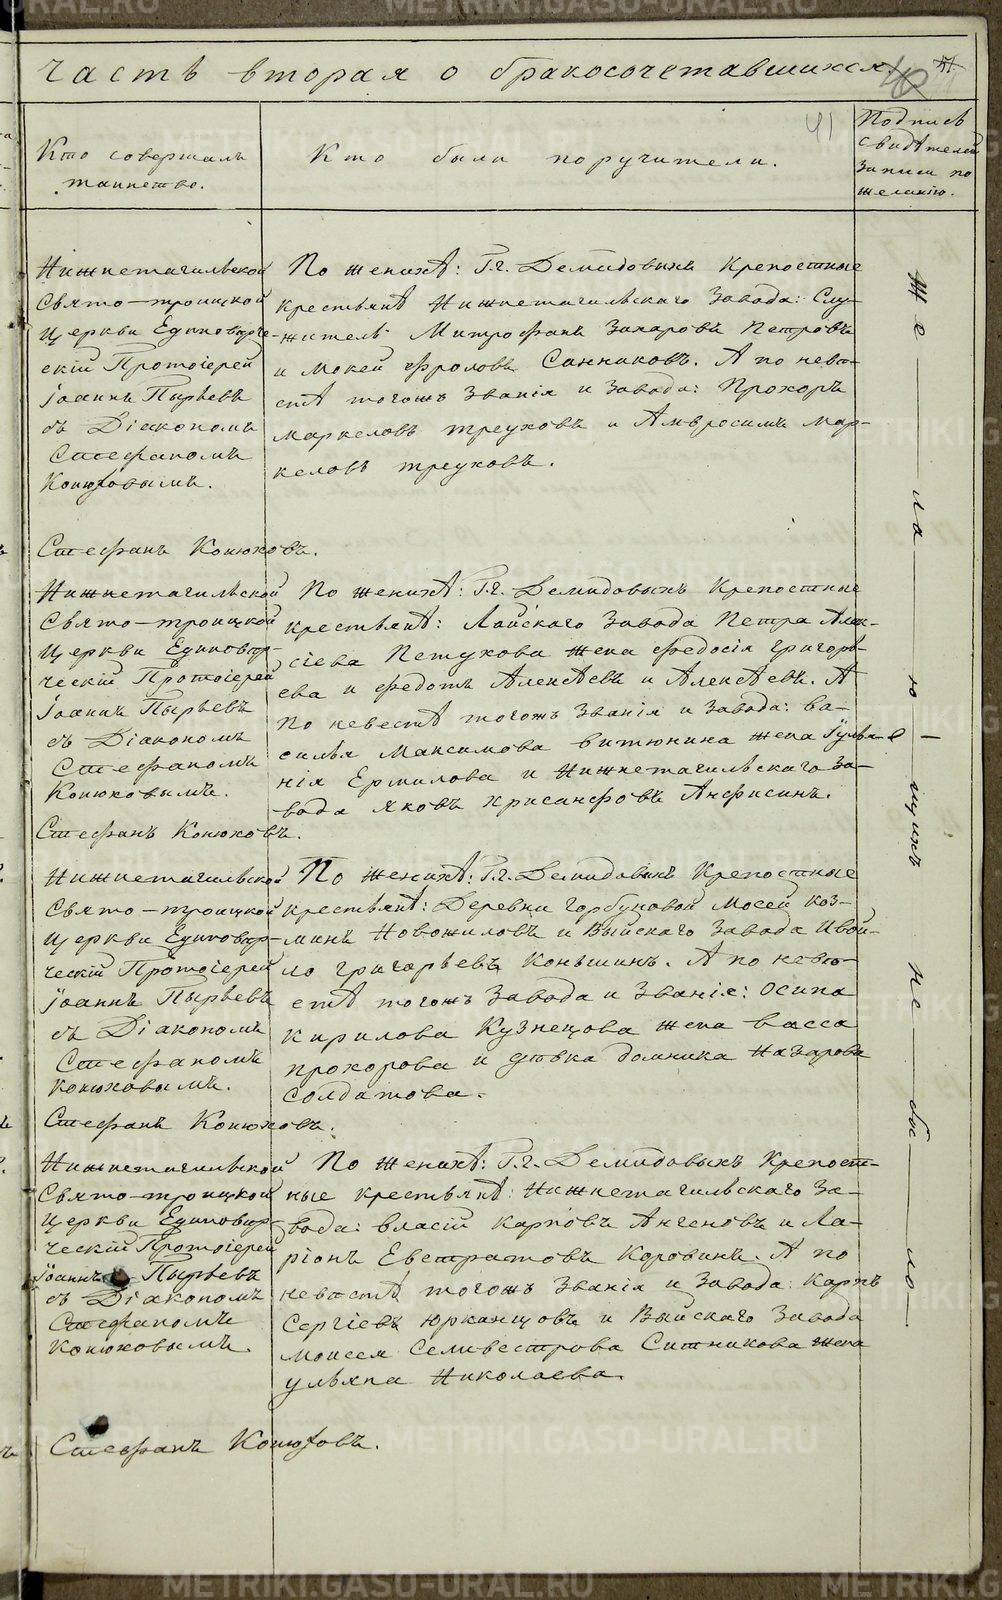 Часть вторая о бракосочетавшихся.
41
Кто совершалъ
таинство.
Кто были поручители.
Подпись
свидѣтелей
записи по
желанію.
Нижнетагильской
Свято-троицкой
Церкви Единовѣрче-
скій Протоіерей
Іоаннъ Пырьевъ
съ Діакономъ
Стефаномъ
Конюховымъ.
Стефанъ Конюховъ.
По женихѣ: Г.г. Демидовыхъ Крепостные
крестьянѣ Нижнетагильскаго Завода: Слу-
житель Митрофанъ Захаровъ Петровъ
и Мокей Фроловъ Санниковъ. А по неве-
стѣ тогожъ Званія и Завода: Прохоръ
Маркеловъ треуховъ и Амвросимъ Мар-
келовъ треуховъ.
Нижнетагильской
Свято-троицкой
Церкви Единовѣр-
ческій Протоіерей
Іоаннъ Пырьевъ
съ Діакономъ
Стефаномъ
Конюховымъ.
Стефанъ Конюховъ.
По женихѣ: Г.г. Демидовыхъ Крепостные
крестьянѣ: Лайскаго Завода Петра Алек-
сіева Петухова жена Федосія Григорь-
ева и Федотъ Алексѣевъ и Алексѣевъ. А
по невестѣ тогожъ Званія и Завода: Ва-
силья Максимова Витюнина жена Гулья-
нія Ермилова и Нижнетагильскаго За-
вода Яковъ Хрисанфовъ Анфисинъ.
Нижнетагильской
Свято-троицкой
Церкви Единовѣр-
ческій Протоіерей
Іоаннъ Пырьевъ
съ Діакономъ
Стефаномъ
Конюховымъ.
Стефанъ Конюховъ.
По женихѣ: Г.г. Демидовыхъ Крепостные
крестьянѣ: Деревни Горбуновой Мосей Коз-
минъ Новожиловъ и Выйскаго Завода Ивой-
ло Григорьевъ Коньшинъ. А по неве-
стѣ тогожъ Завода и Званія: Осипа
Кирилова Кузнецова жена Васса
Прохорова и дѣвка Домника Назарова
Солдатова.
Нижнетагильской
Свято-троицкой
Церкви Единовѣр-
ческій Протоіерей
Іоаннъ Пырьевъ
съ Діакономъ
Стефаномъ
Конюховымъ.
Стефанъ Конюховъ.
По женихѣ: Г.г. Демидовыхъ Крепост-
ные крестьянѣ: Нижнетагильскаго За-
вода: Власій Карповъ Анченовъ и Ла-
ріонъ Евстратовъ Коровинъ. А по
невестѣ тогожъ Званія и Завода: Карпъ
Сергіевъ Юрканцовъ и Выйскаго Завода
Моисея Селивестрова Ситникова жена
Ульяна Николаева.
Же—ла—ю—щихъ не—бы—ло—
METRIKI.GASO-URAL.RU